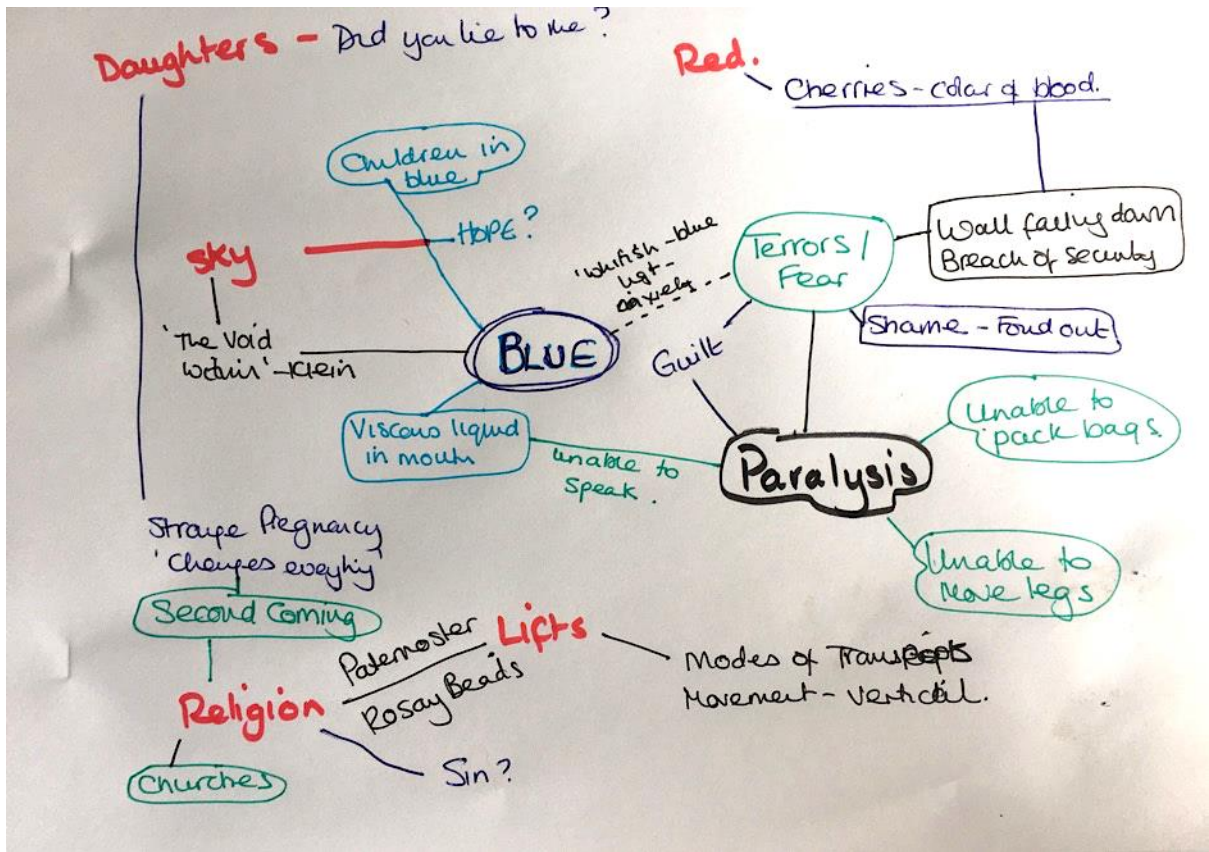 Daughters - Did you lie to me?
Red.
Cherries - colar of blood.
Children in
blue
HOPE?
Sky
'The Void
Within' - Klein
BLUE
'Whitish - blue
light -
anxiety
Terrors /
Fear
Wall falling down
Breach of Security
Shame - Found out
Guilt
Viscous liquid
in mouth
Unable to
Speak.
Paralysis
Unable to
pack bags
Unable to
Move legs
Strange Pregnancy
'Changes everything'
Second Coming
Religion
Paternoster
Rosay Beads
Lifts
Modes of Transport
Movement - Vertical.
Sin?
Churches